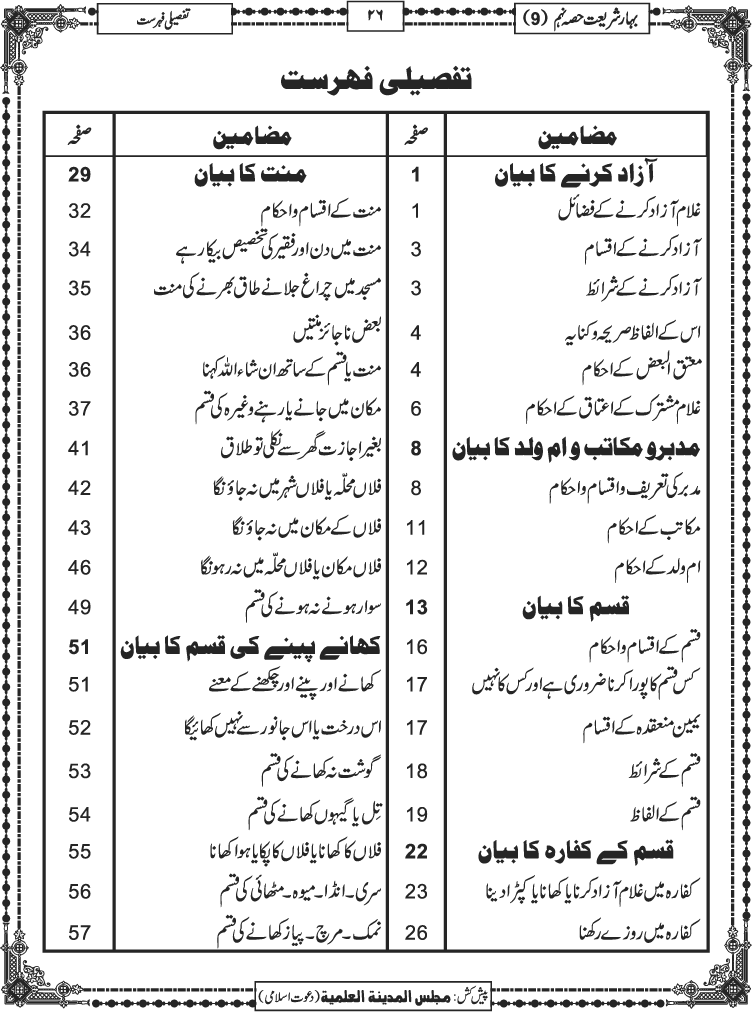 بہار شریعت حصہ نہم (9)
۲۶
تفصیلی فہرست
تفصیلی فہرست
مضامین صفحہ
آزاد کرنے کا بیان 1
غلام آزاد کرنے کے فضائل 1
آزاد کرنے کے اقسام 3
آزاد کرنے کے شرائط 3
اس کے الفاظ صریحہ و کنایہ 4
معتق البعض کے احکام 4
غلام مشترک کے اعتاق کے احکام 6
مدبر و مکاتب و ام ولد کا بیان 8
مدبر کی تعریف و اقسام و احکام 8
مکاتب کے احکام 11
ام ولد کے احکام 12
قسم کا بیان 13
قسم کے اقسام و احکام 16
کس قسم کا پورا کرنا ضروری ہے اور کس کا نہیں 17
یمین منعقدہ کے اقسام 17
قسم کے شرائط 18
قسم کے الفاظ 19
قسم کے کفارہ کا بیان 22
کفارہ میں غلام آزاد کرنا یا کھانا یا کپڑا دینا 23
کفارہ میں روزے رکھنا 26
مضامین صفحہ
منت کا بیان 29
منت کے اقسام و احکام 32
منت میں دن اور فقیر کی تخصیص بیکار ہے 34
مسجد میں چراغ جلانے طاق بھرنے کی منت 35
بعض ناجائز منتیں 36
منت یا قسم کے ساتھ ان شاء اللہ کہنا 36
مکان میں جانے یا رہنے وغیرہ کی قسم 37
بغیر اجازت گھر سے نکلی تو طلاق 41
فلاں محلّہ یا فلاں شہر میں نہ جاؤنگا 42
فلاں کے مکان میں نہ جاؤنگا 43
فلاں مکان یا فلاں محلّہ میں نہ رہونگا 46
سوار ہونے نہ ہونے کی قسم 49
کھانے پینے کی قسم کا بیان 51
کھانے اور پینے اور چکھنے کے معنے 51
اس درخت یا اس جانور سے نہیں کھائیگا 52
گوشت نہ کھانے کی قسم 53
تِل یا گیہوں کھانے کی قسم 54
فلاں کا کھانا یا فلاں کا پکایا ہوا کھانا 55
سری۔انڈا۔میوہ۔مٹھائی کی قسم 56
نمک۔مرچ۔پیاز کھانے کی قسم 57
پیش کش: مجلس المدینۃ العلمیۃ (دعوت اسلامی)